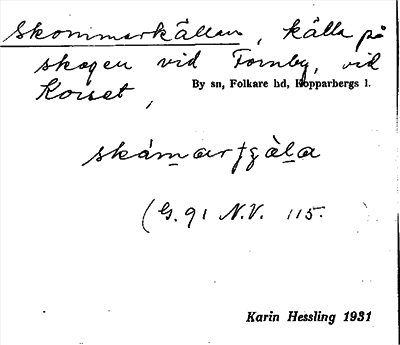 Skommarkällan, källa på
skogen vid Fornby, vid
Korset,
By sn, Folkare hd, Kopparbergs l.
skám̲arʃgàl̲a
(G. 91 N.V. 115.
Karin Hessling 1931